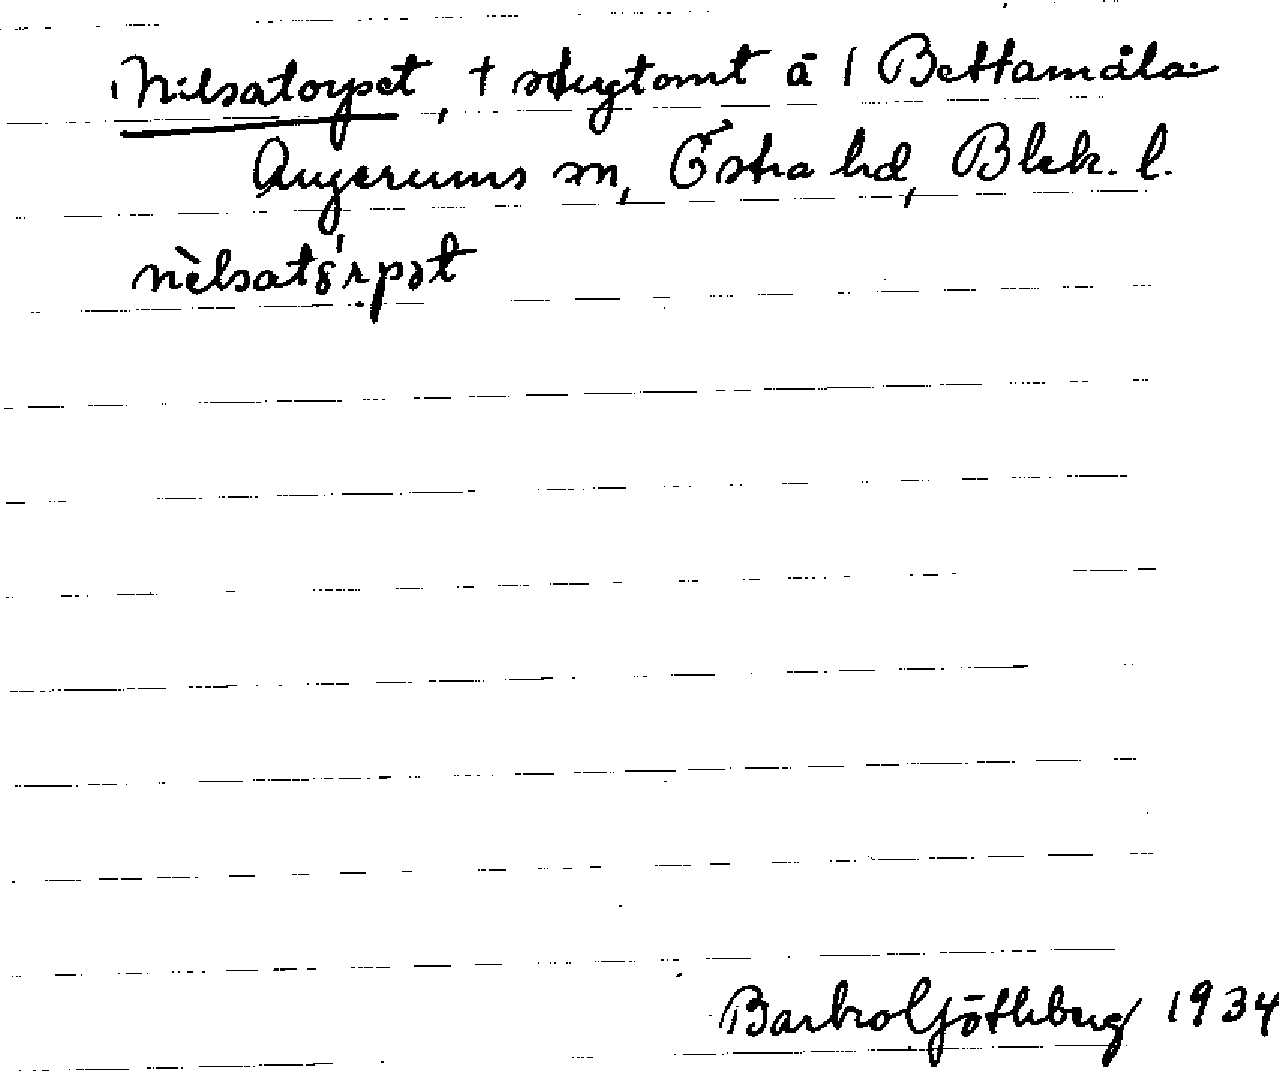 Nilsatorpet, † stugtomt å 1 Bettamåla
Augerums sn, Östra hd, Blek. l.
nèlsatɞ́rpət
Barbro Götheberg 1934